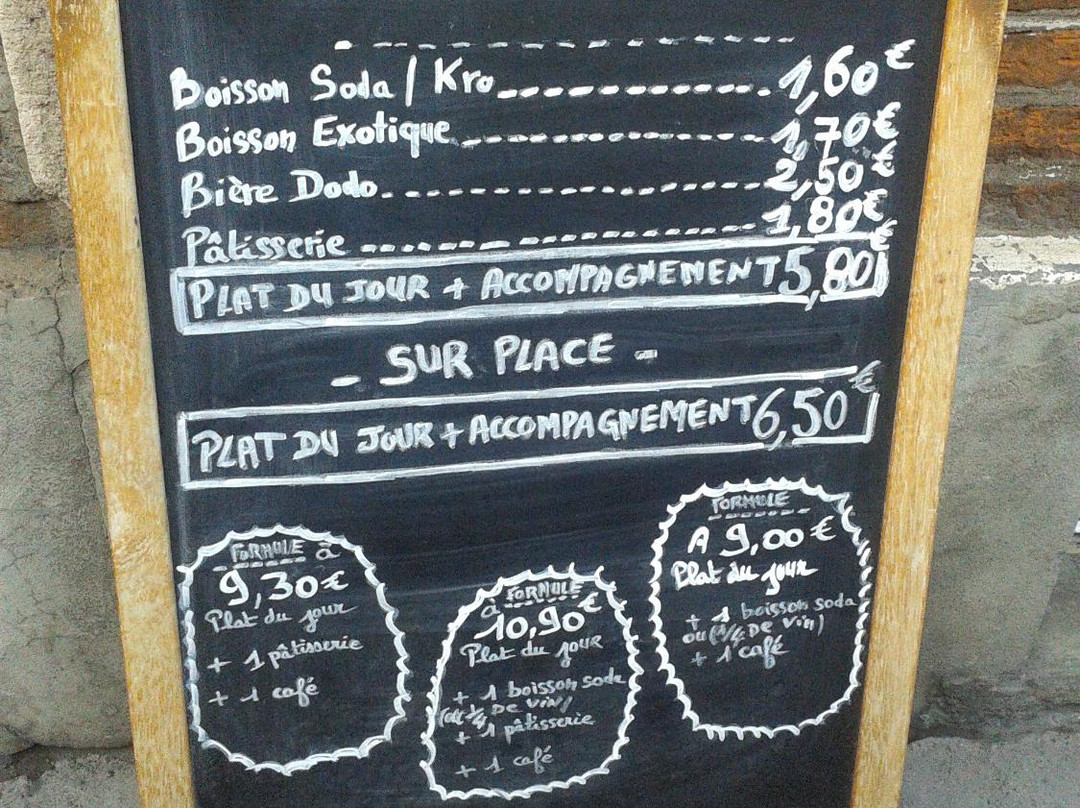 Boisson Soda / Kro 1,60€
Boisson Exotique 1,70€
Bière Dodo 2,50€
Pâtisserie 1,80€
PLAT DU JOUR + ACCOMPAGNEMENT 5,80€
- SUR PLACE -
PLAT DU JOUR + ACCOMPAGNEMENT 6,50€
FORMULE à
9,30€
Plat du jour
+ 1 pâtisserie
+ 1 café
FORMULE
à 10,90€
Plat du jour
+ 1 boisson soda
(ou 1/4 DE vin)
+ 1 pâtisserie
+ 1 café
FORMULE
A 9,00€
Plat du jour
+ 1 boisson soda
ou (1/4 DE vin)
+ 1 café